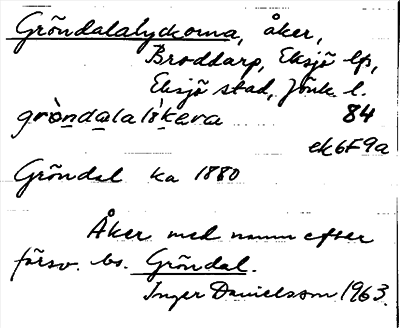 Gröndalalyckorna, åker,
Broddarp, Eksjö lfs,
Eksjö stad, Jönk. l.
grò̀ndalalỳkeṛa 84
ek6F9a
Gröndal ka 1880
Åker med namn efter
försv. bs. Gröndal.
Inger Danielsson 1963.